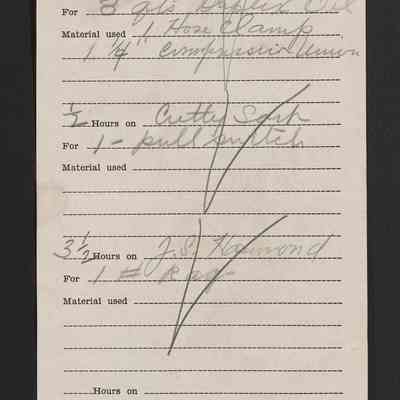 For 8 qts Duplex Oil
Material used 1" Hose Clamp
1 1/4" Compression Union
1/2 Hours on Cutty Sark
For 1 - pull switch
Material used
3 1/2 Hours on J. S. Hammond
For 1 # Rag
Material used
Hours on